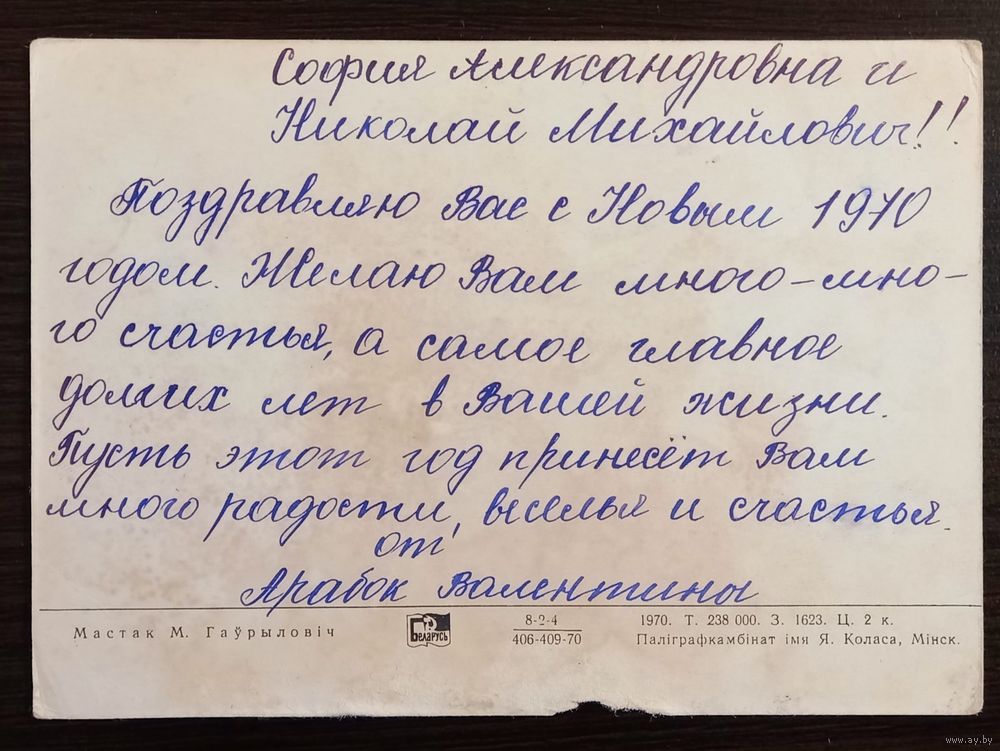 София Александровна и
Николай Михайлович!!
Поздравляю Вас с Новым 1970
годом. Желаю Вам много-мно-
го счастья, а самое главное
долгих лет в Вашей жизни.
Пусть этот год принесёт Вам
много радости, веселья и счастья.
от
Арабок Валентины
Мастак М. Гаўрыловіч
Беларусь
8-2-4
406-409-70
1970. Т. 238 000. З. 1623. Ц. 2 к.
Паліграфкамбінат імя Я. Коласа, Мінск.
www.ay.by